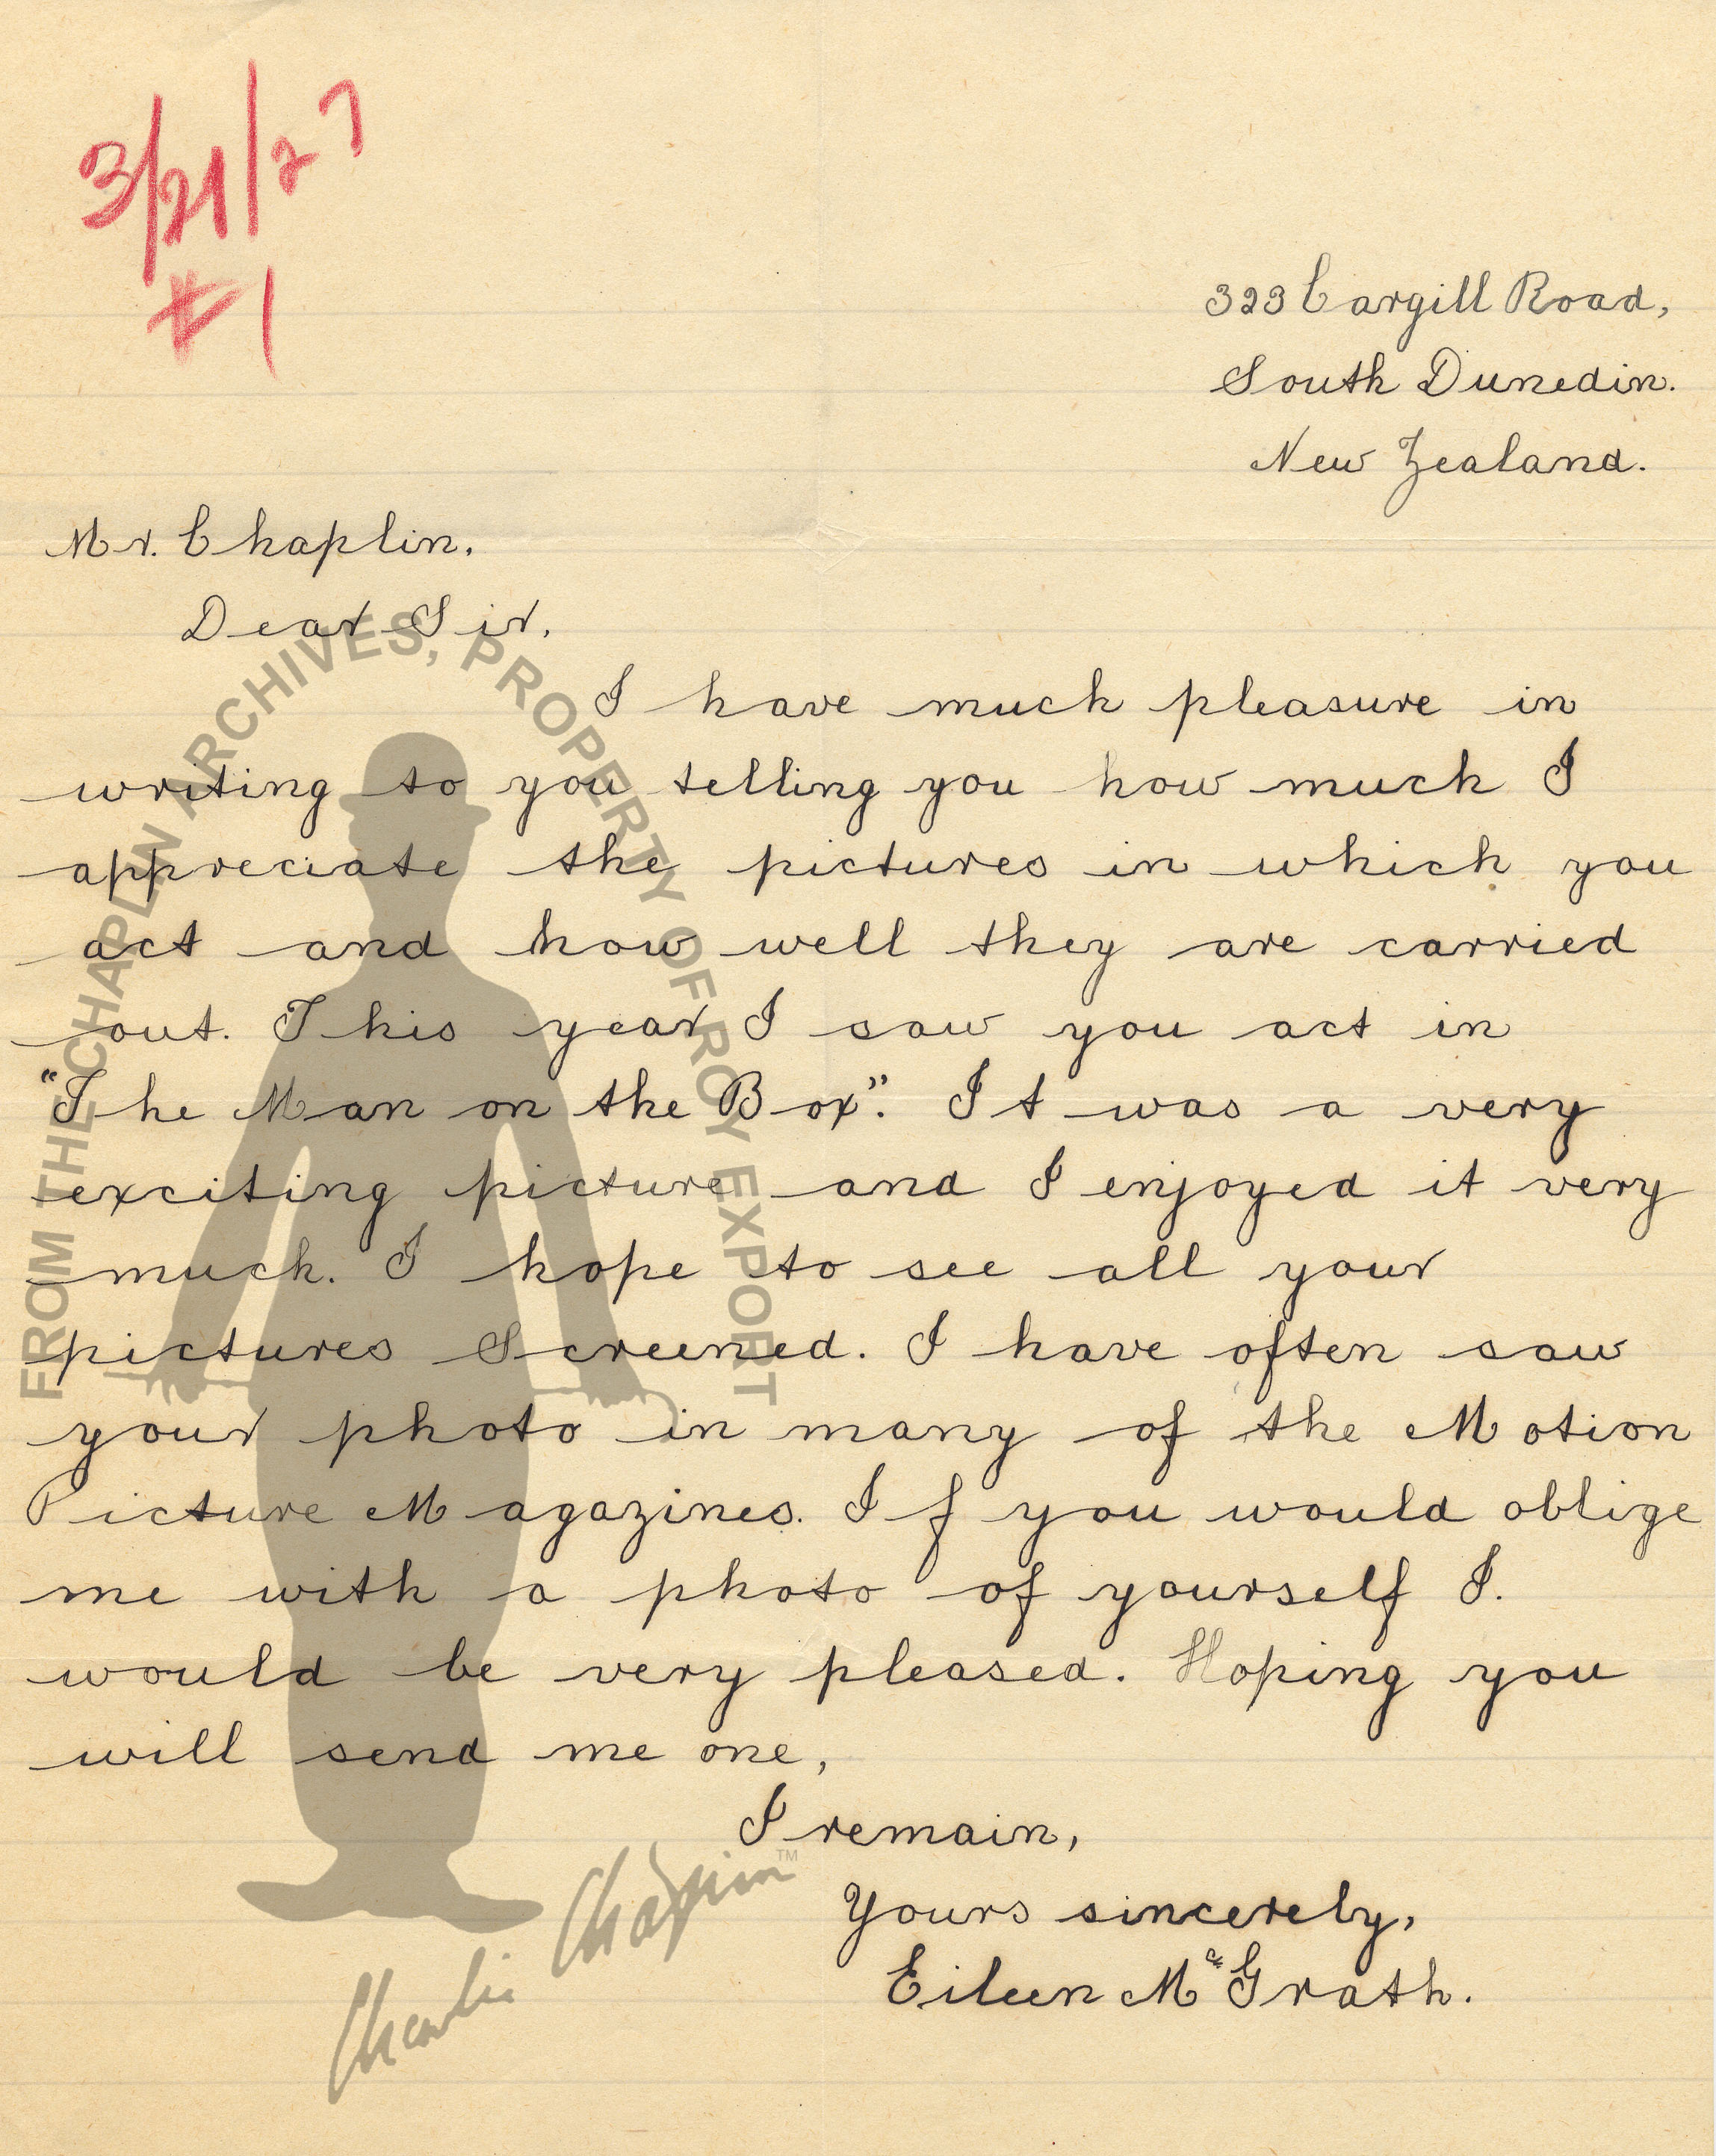 3/21/27
#1
323 Cargill Road,
South Dunedin.
New Zealand.
Mr. Chaplin,
Dear Sir,
I have much pleasure in
writing to you telling you how much I
appreciate the pictures in which you
act and how well they are carried
out. This year I saw you act in
"The Man on the Box". It was a very
exciting picture and I enjoyed it very
much. I hope to see all your
pictures Screened. I have often saw
your photo in many of the Motion
Picture Magazines. If you would oblige
me with a photo of yourself I.
would be very pleased. Hoping you
will send me one,
I remain,
Yours sincerely,
Eileen McGrath.
FROM THE CHAPLIN ARCHIVES, PROPERTY OF ROY EXPORT
Charlie Chaplin™